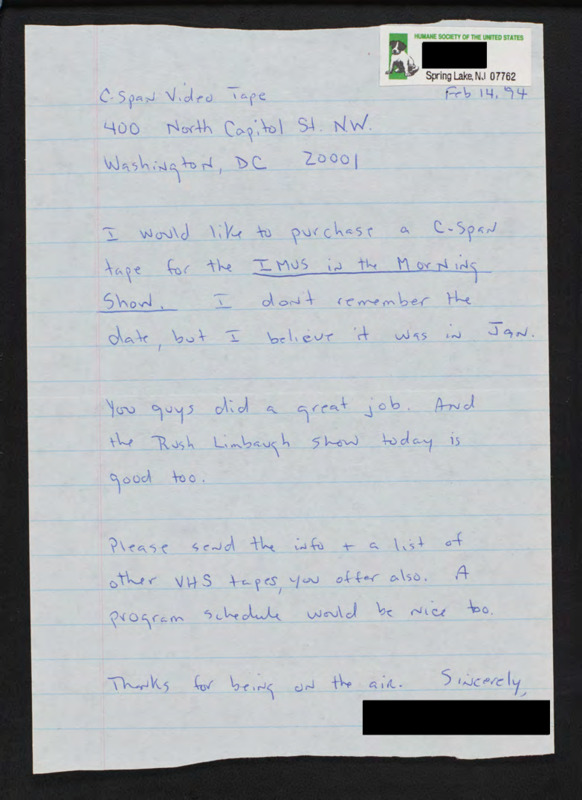 HUMANE SOCIETY OF THE UNITED STATES
Spring Lake, NJ 07762
Feb 14, '94
C-Span Video Tape
400 North Capitol St. NW.
Washington, DC 20001
I would like to purchase a C-Span
tape for the IMUS in the Morning
Show. I don't remember the
date, but I believe it was in Jan.
You guys did a great job. And
the Rush Limbaugh show today is
good too.
Please send the info + a list of
other VHS tapes, you offer also. A
program schedule would be nice too.
Thanks for being on the air. Sincerely,